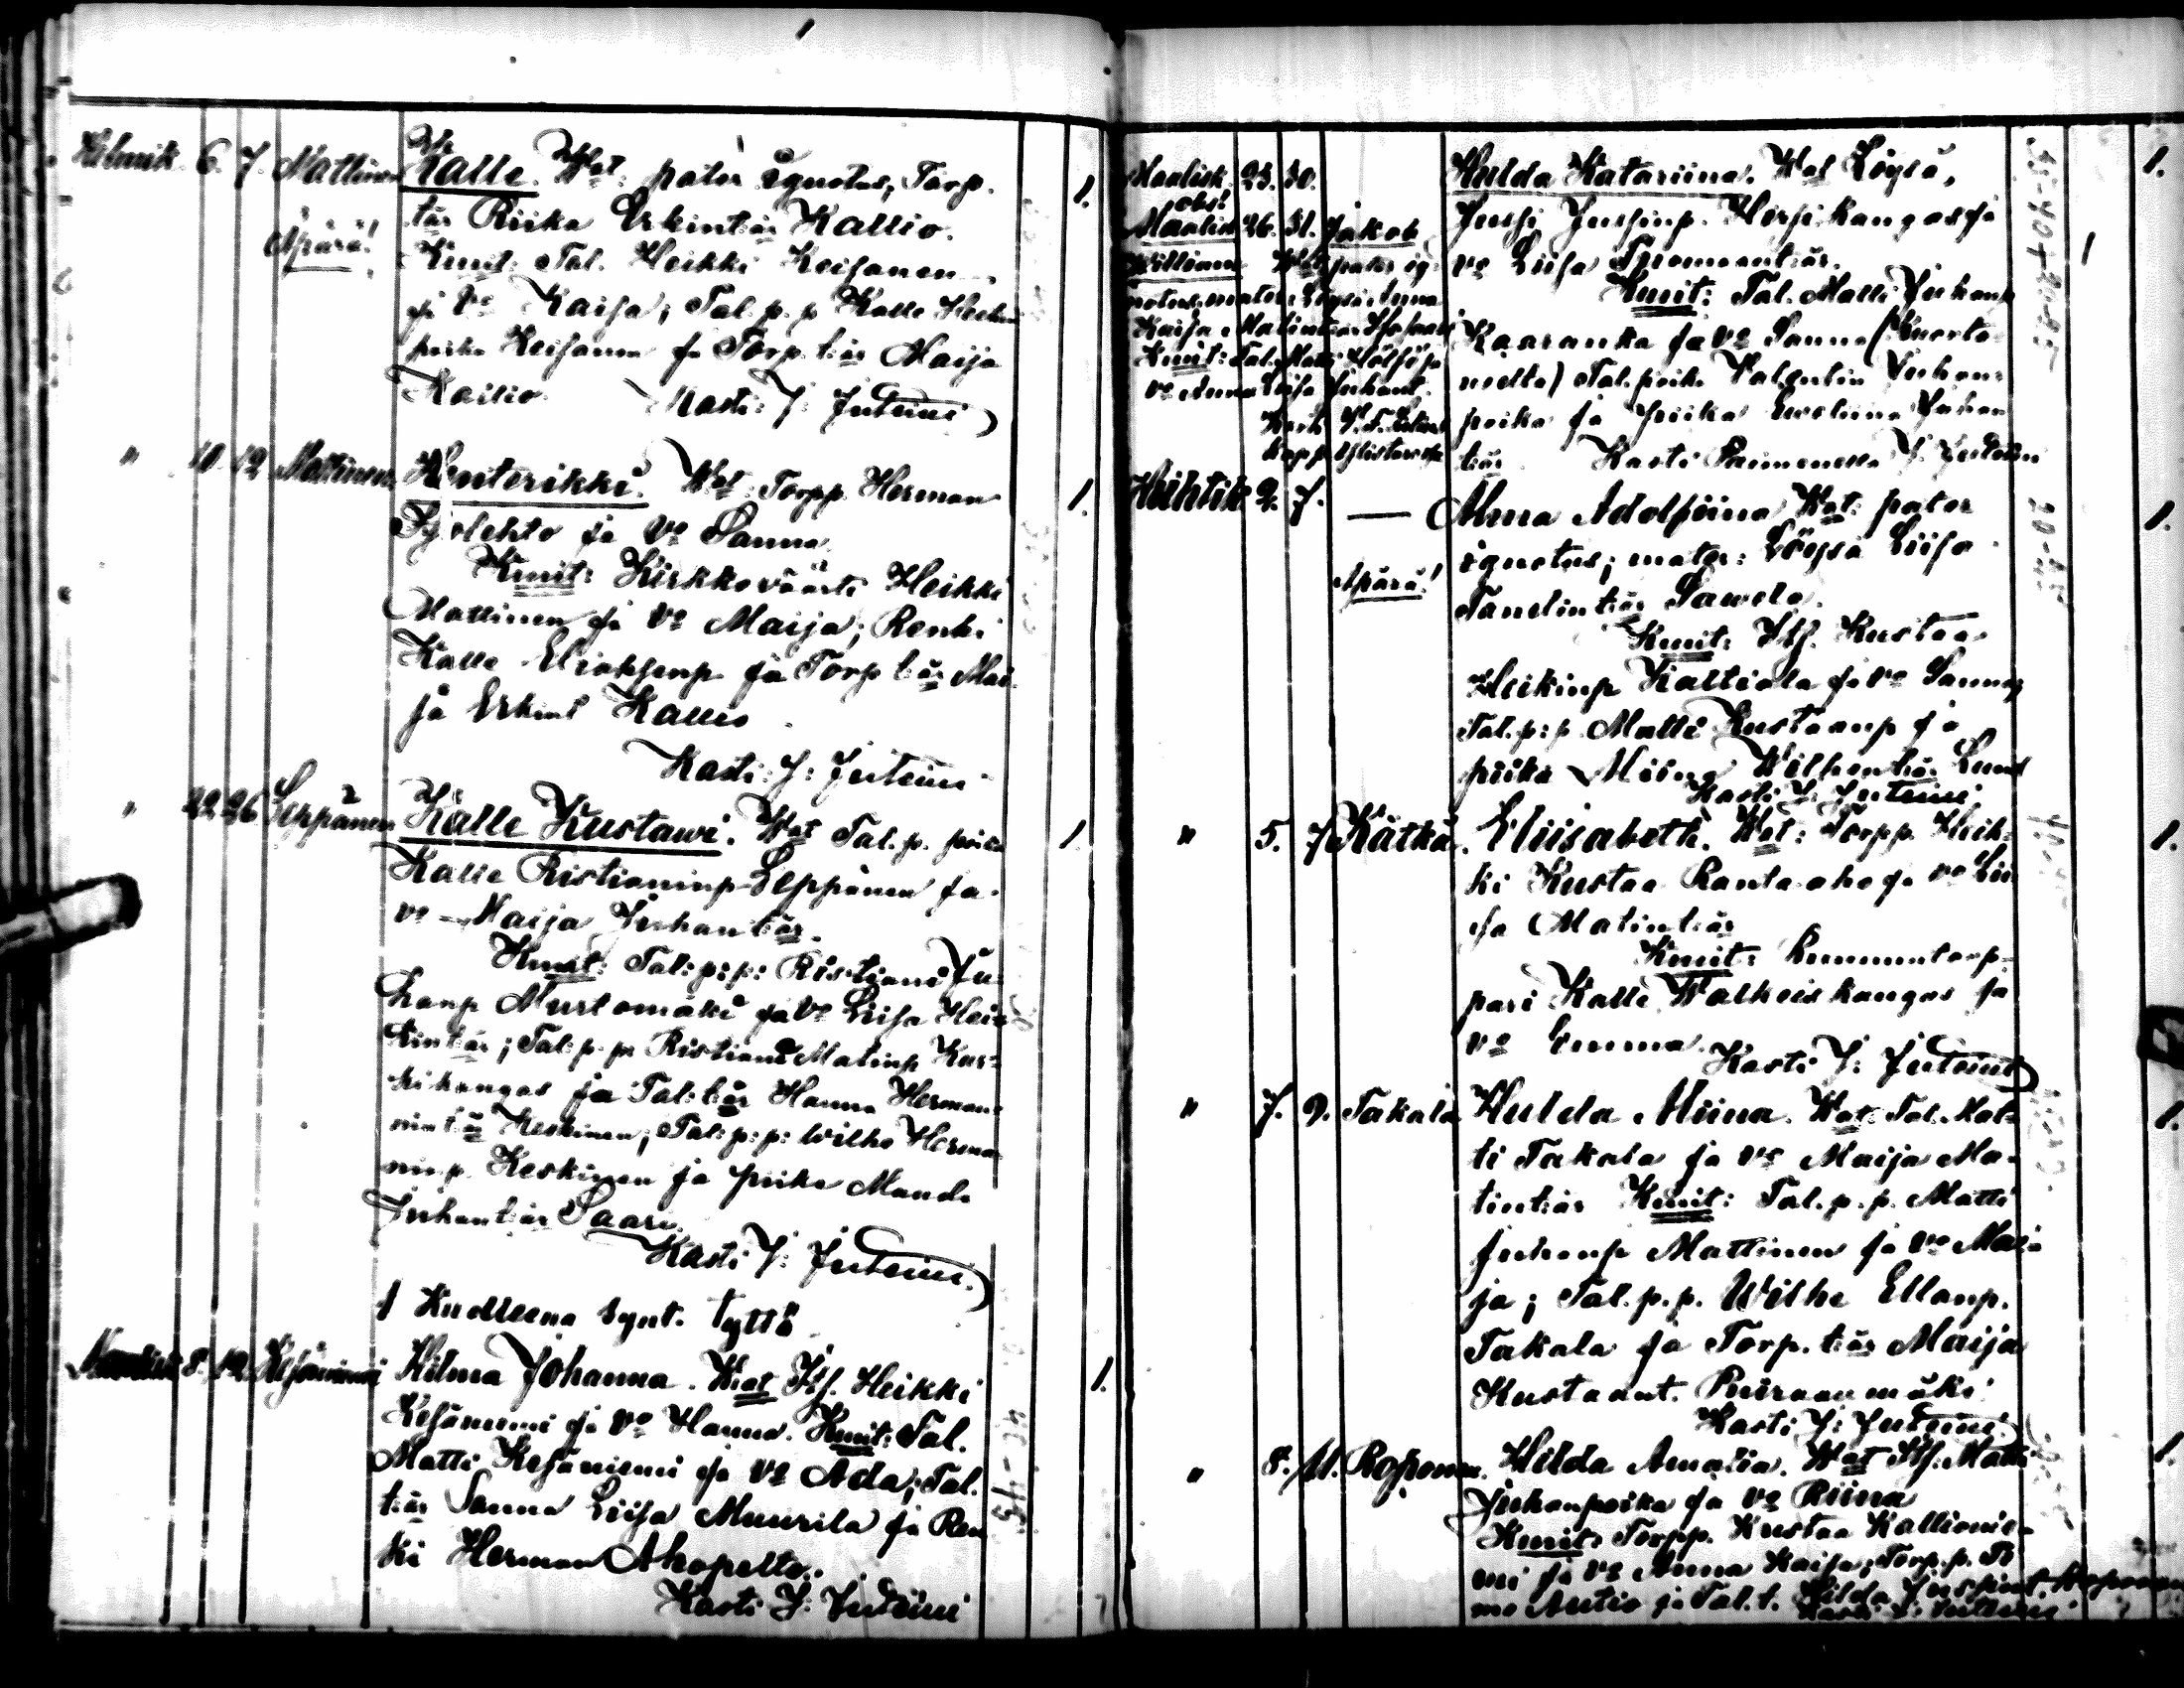 Helmik. 6. 7. Mattinen Kalle. Wat: pater ignotus, Torp.
tär Riika Erkintär Kallio.
Äpärä!
Kmit: Tal. Heikki Keisanen
ja Vo Kaisa; Tal. p. p. Kalle Heikin
poika Keisanen ja Torp. tär Maija
Kallio. Kasti: J: Juteini
1.
" 10. 12. Mattinen Henterikki. Wat: Torpp. Herman
Sysilehto ja Vo Sanna.
Kmit: Kirkkoväärti Heikki
Mattinen ja Vo Maija; Renki
Kalle Eliaksenp. ja Torp. tär Mai
ja Erkint Kallio
Kasti: J: Juteini
1.
" 22. 26. Leppänen Kalle Kustawi. Wat Tal. p. poika
Kalle Ristianinp Leppänen ja
vo Maija Juhantär.
Kmit: Tal: p: p: Ristiani Ju-
hanp Mustomäki ja Vo Liisa Hei-
kintär; Tal: p. p: Ristiani Matinp Kur-
kikangas ja Tal: tär Hanna Herman-
nintär Keskinen; Tal: p: p: Wilho Herma-
ninp. Keskinen ja piika Manda
Juhantär Saari.
Kasti J: Juteini.
1.
1 Kuolleena synt. tyttö
Maalisk 8. 12. Kesäniemi Hilma Johanna. Wat Its. Heikki
Kesäniemi ja Vo Hanna. Kmit: Tal.
Matti Kesäniemi ja Vo Ada; Tal.
tär Sanna Liisa Muurila ja Ren
ki Herman Ahopelto.
Kasti J: Juteini
1.
Maalisk. 23. 30. Hulda Katariina. Wat Löysä,
Jussi Jussinp. Hirsikangas ja
vo Liisa Tuomaantär.
Kmit: Tal. Matti Juhanp
Kaaranka ja Vo Sanna (Kuorta
neelta) Tal. poika Valentin Juhan-
poika ja piika Eveliina Juhan
tär Kasti J. Juteini
1.
obs!
Maalisk 26. 31. Jakob
Williami Wat pater ig-
notus, mater: Löysä Anna
Kaisa Matintär
Kmit: Tal. Matti Hölsö ja
Vo Anna Liisa Juhant.
1
Huhtik 2. 7. — Alma Adolfiina Wat: pater
ignotus; mater: Löysä Liisa
Äpärä!
Tanelintär Sawela.
Kmit: Its. Kustaa
Heikinp Kaltiala ja Vo Sanna;
Tal. p: p Matti Kustaanp ja
piika Miina Wilhontär Lund
Kasti J: Juteini
1.
" 5. 7. Kätkä. Eliisabeth. Wat: Torpp. Heik-
ki Kustaa Ranta-aho ja vo Lii
sa Matintär
Kmit: Kruununtorp-
pari Kalle Walkeiskangas ja
vo Emma.
Kasti J: Juteini
1.
" 7. 9. Takala Hulda Miina. Wat: Tal. Mat-
ti Takala ja vo Maija Ma-
tintär Kmit: Tal. p. p. Matti
Juhanp Mattinen ja Vo Mai-
ja; Tal. p. p. Wilhe Ellanp.
Takala ja Torp. tär Maija
Kustaant.
Kasti J: Juteini
1.
" 8. 11. Roponen. Hilda Amalia. Wat Its. Matti
Juhanpoika ja Vo Riina
Kmit: Torpp. Kustaa Kallionie-
mi ja Vo Anna Kaisa; Torp. p. To
mo Autio ja Tal. t. Hilda
Kasti J: Juteini
1.